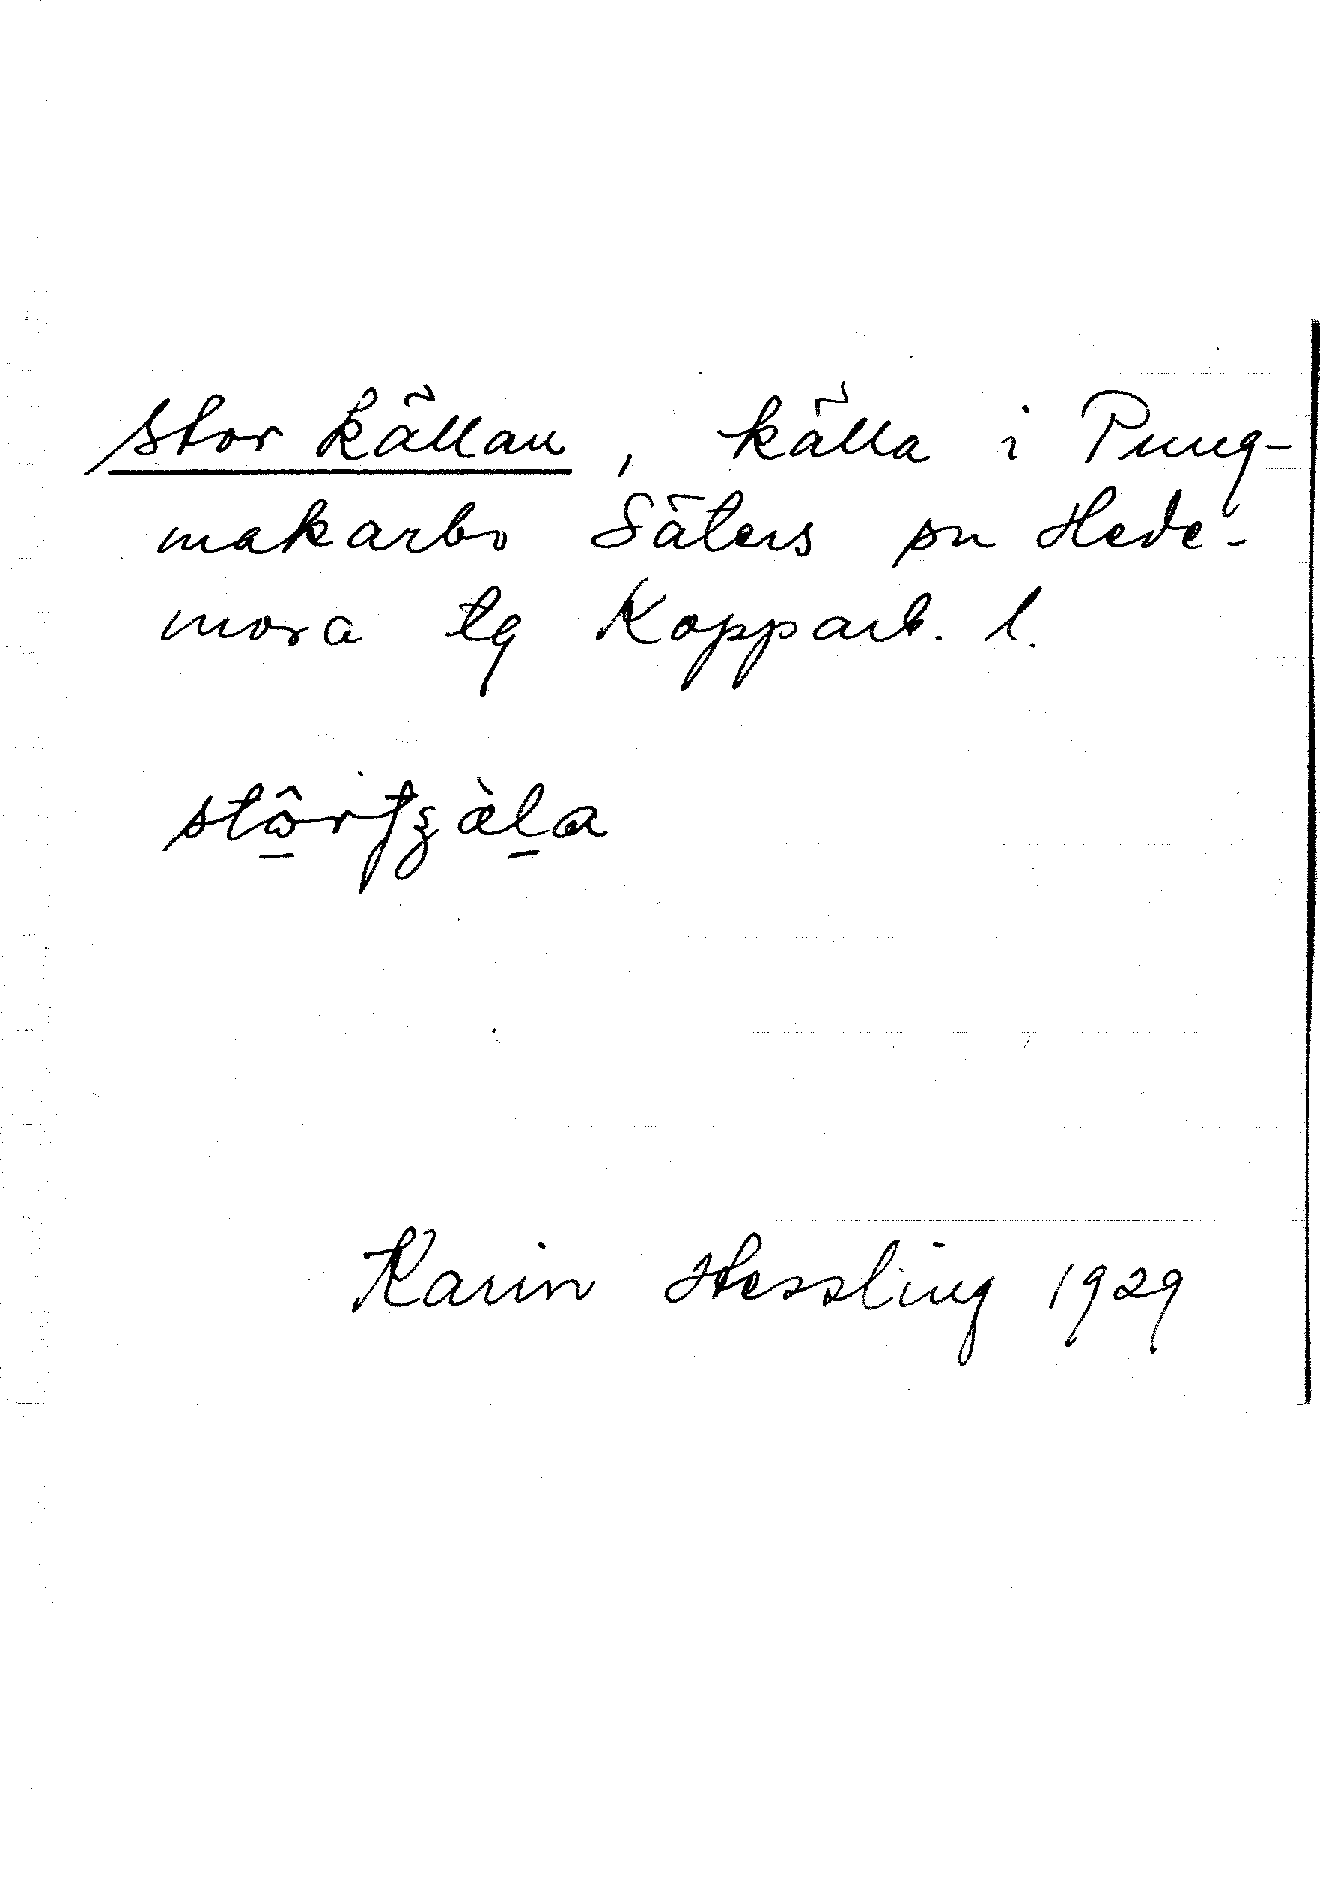 Storkällan, källa i Pung-
makarbo Säters sn Hede-
mora tg Kopparb. l.
Karin Hessling 1929